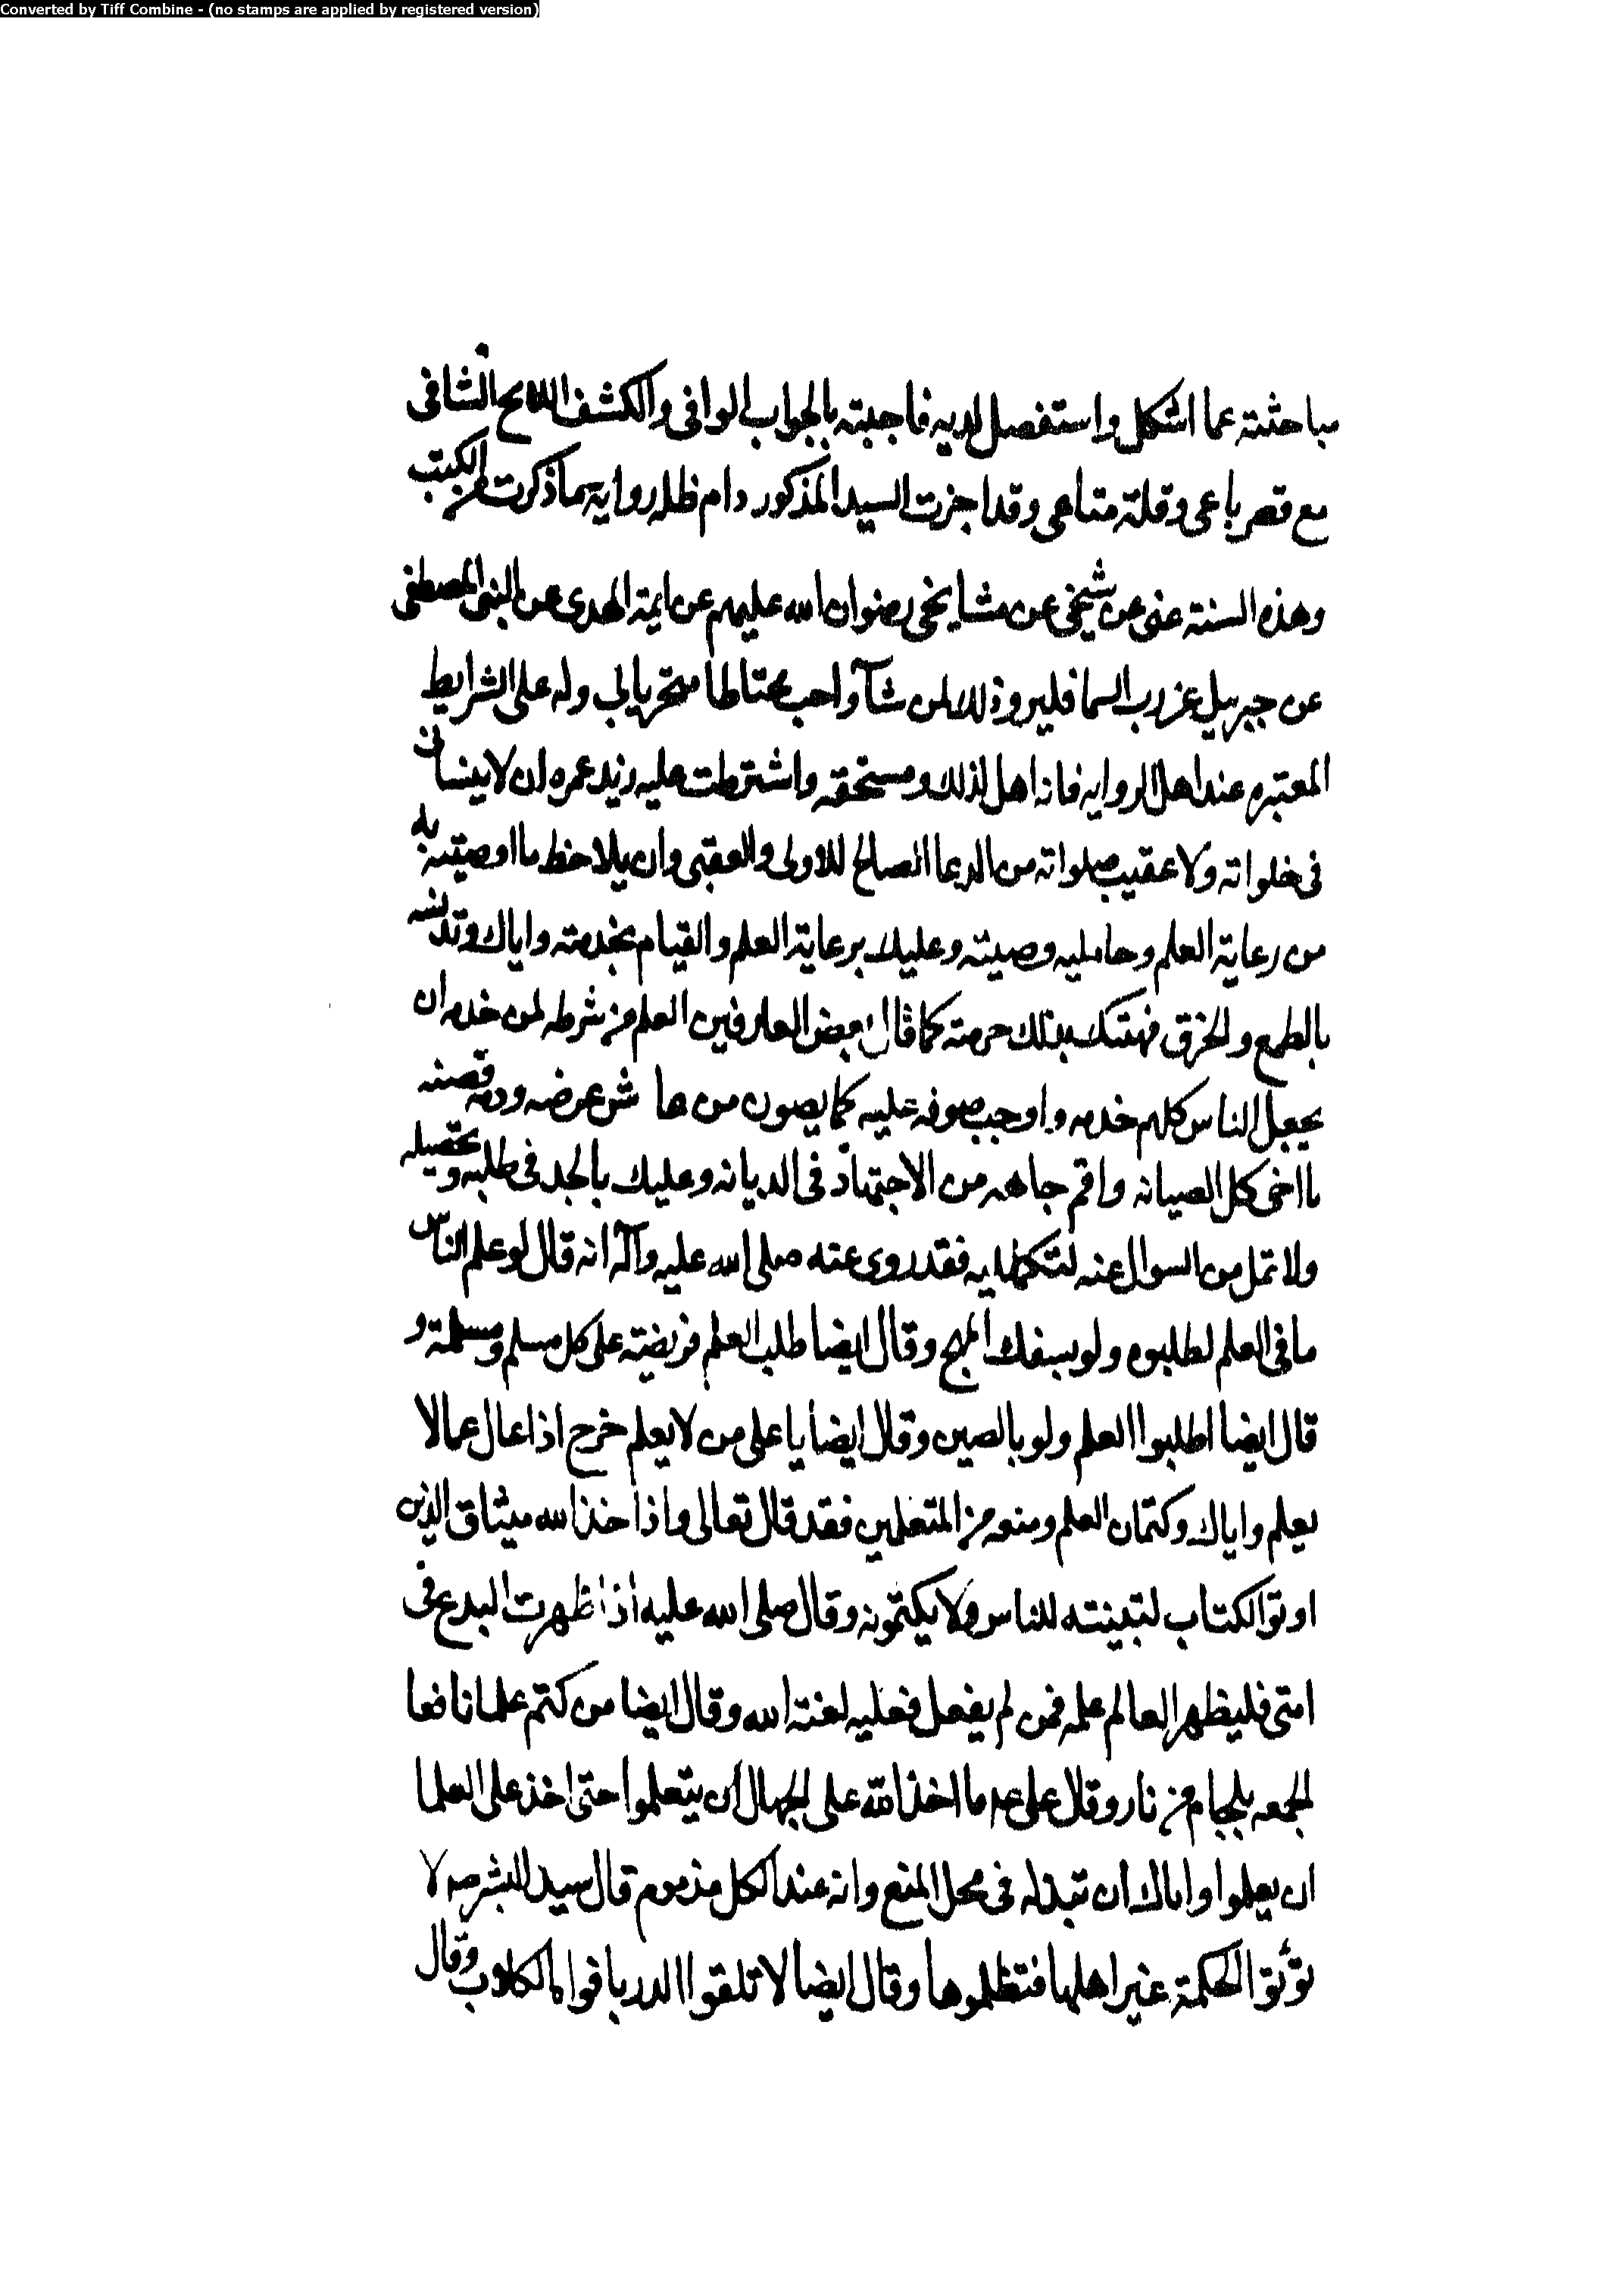 Converted by Tiff Combine - (no stamps are applied by registered version)
مباحثته عما اشكل واستفصل لديه فاجبته بالجواب الوافى والكشف اللائح الشافى
مع قصر باعى وقلة متاعى وقد اجزت السيد المذكور دام ظله رواية ما ذكرت من الكتب
وهذه السنة عنى عن شيخى عن مشايخى رضوان الله عليهم عن ايمة الهدى عن النبى المصطفى
عن جبرييل عن رب السما فليرو ذلك لمن شآ واحب محتاطا متحريا لى وله على الشرايط
المعتبره عند اهل الروايه فانه اهل لذلك ومستحقه واشترطت عليه زيد عمره ان لا ينسانى
فى خلواته ولا عقيب صلواته من الدعا الصالح للاولى والعقبى وان يلاحظ ما اوصيته به
من رعاية العلم وحامليه وصيته وعليك برعاية العلم والقيام بخدمته واياك وتدنسه
بالطمع والخرق فهتك بذلك حرمته كما قال بعض العارفين العلم من شرطه لمن خدمه ان
يجعل الناس كلهم خدمه واوجب صونه عليه كما يصون من عاش عرضه ودمه فصنه
يا اخى كل الصيانه واقم جاهه من الاجتهاد فى الديانه وعليك بالجد فى طلبه وتحصيله
ولا تمل من السوال عنه لتكمله فقد روى عنه صلى الله عليه وآله انه قال لو علم الناس
ما فى العلم لطلبوه ولو بسفك المهج وقال ايضا طلب العلم فريضته على كل مسلم ومسلمة و
قال ايضا اطلبوا العلم ولو بالصين وقال ايضا يا على من لا يعلم خرج اذا عال عمالا
يعلم واياك وكتمان العلم ومنعه من المتعلمين فقد قال تعالى واذا خذ الله ميثاق الذين
اوتوا الكتاب لتبيننه للناس ولا يكتمونه وقال صلى الله عليه اذا ظهرت البدع فى
امتى فليظهر العالم علمه فمن لم يفعل فعليه لعنته الله وقال ايضا من كتم علما نافعا
الجمعه بلجام من نار وقال على عم ما اخذ الله على الجهال ان يتعلموا حتى اخذ على العلما
ان يعلموا واياك ان تبذله فى محل المنع وانه عند الكل مذموم قال سيد البشر صه لا
توتوا الحكمة غير اهلها فتظلموها وقال ايضا لا تلقوا الدر بافواه الكلاب وقال